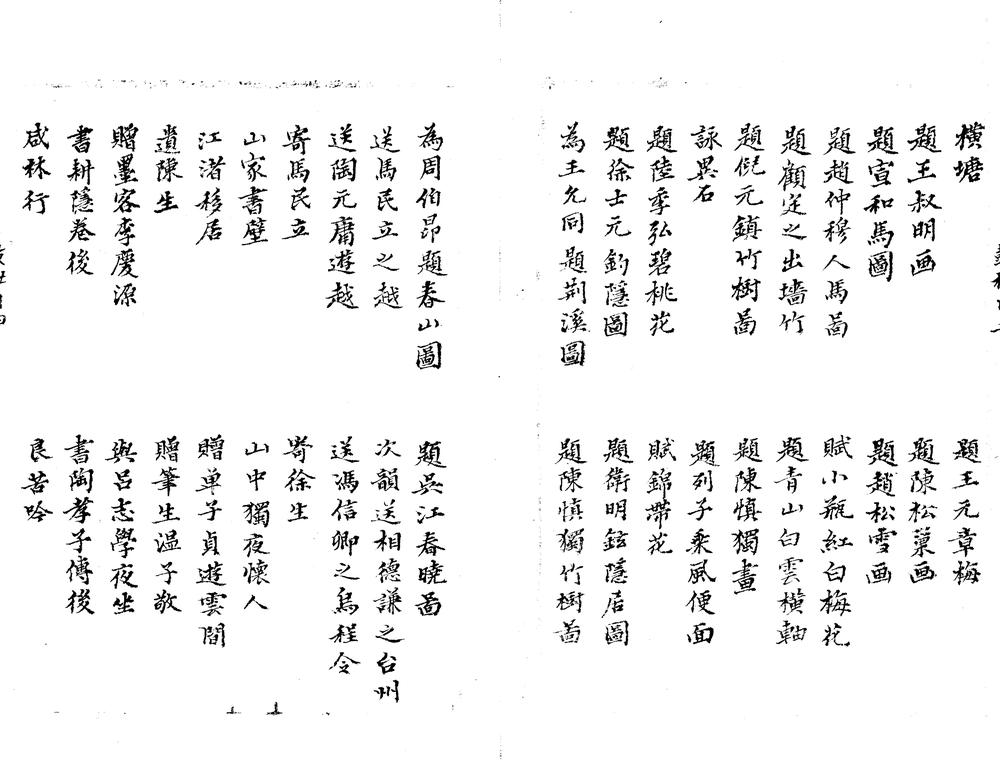 橫塘
題王元章梅
題王叔明画
題陳松菓画
題宣和馬圖
題趙松雪画
題趙仲穆人馬啚
賦小瓶紅白梅花
題顧定之出墻竹
題青山白雲橫軸
題倪元鎮竹樹啚
題陳慎獨畫
詠異石
題列子乘風便面
題陸季弘碧桃花
賦錦帶花
題徐士元釣隱圖
題衛明鉉隱居圖
為王允同題荆溪圖
題陳慎獨竹樹啚
為周伯昂題春山圖
題吳江春曉啚
送馬民立之越
次韻送相德謙之台州
送陶元庸遊越
送馮信卿之烏程令
寄馬民立
寄徐生
山家書壁
山中獨夜懷人
江渚移居
贈單子貞遊雲間
遺陳生
贈筆生溫子敬
贈墨客李慶源
與呂志學夜坐
書耕隱卷後
書陶孝子傳後
咸林行
良苦吟